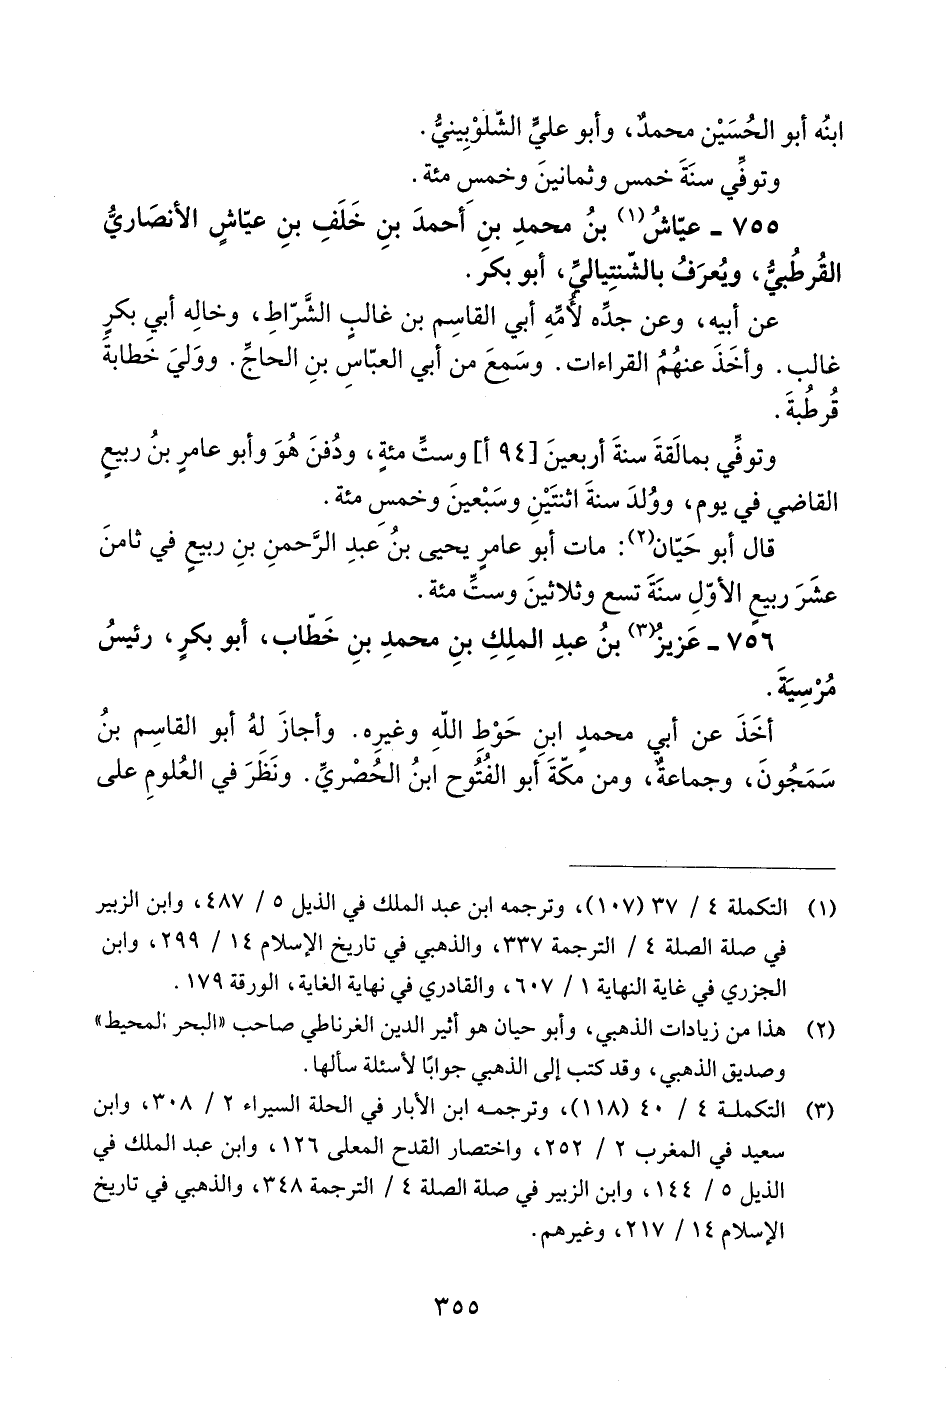 ابنُه أبو الحُسَيْن محمدٌ، وأبو عليٍّ الشّلَوْبِينيُّ.
وتوفِّي سنَةَ خمس وثمانينَ وخمسِ مئة.
٧٥٥ ـ عيّاشُ(١) بنُ محمدِ بنِ أحمدَ بنِ خَلَفِ بنِ عيّاشٍ الأنصَاريُّ
القُرطُبيُّ، ويُعرَفُ بالشّنتياليِّ، أبو بكر.
عن أبيه، وعن جدِّه لأُمِّهِ أبي القاسِم بن غالبٍ الشَّرّاطِ، وخالِه أبي بكرٍ
غالب. وأخَذَ عنهُمُ القراءات. وسَمِعَ من أبي العبّاسِ بنِ الحاجِّ. ووَليَ خَطابةَ
قُرطُبةَ.
وتوفِّي بمالَقةَ سنةَ أربعينَ [٩٤ أ] وستِّ مئةٍ، ودُفنَ هُوَ وأبو عامرٍ بنُ ربيعٍ
القاضي في يوم، ووُلدَ سنةَ اثنتَيْنِ وسَبْعينَ وخمسِ مئة.
قال أبو حَيّان(٢): مات أبو عامرٍ يحيى بنُ عبدِ الرَّحمنِ بنِ ربيعٍ في ثامنَ
عشَرَ ربيعٍ الأوّلِ سنَةَ تسع وثلاثينَ وستِّ مئة.
٧٥٦ ـ عَزيزُ(٣) بنُ عبدِ الملِكِ بنِ محمدِ بنِ خَطّاب، أبو بكرٍ، رئيسُ
مُرْسِيَةَ.
أخَذَ عن أبي محمدٍ ابنِ حَوْطِ اللّهِ وغيرِه. وأجازَ لهُ أبو القاسِم بنُ
سَمَجُونَ، وجماعةٌ، ومن مكّةَ أبو الفُتُوح ابنُ الحُصْريِّ. ونَظَرَ في العُلومِ على
(١) التكملة ٤ / ٣٧ (١٠٧)، وترجمه ابن عبد الملك في الذيل ٥ / ٤٨٧، وابن الزبير
في صلة الصلة ٤ / الترجمة ٣٣٧، والذهبي في تاريخ الإسلام ١٤ / ٢٩٩، وابن
الجزري في غاية النهاية ١ / ٦٠٧، والقادري في نهاية الغاية، الورقة ١٧٩.
(٢) هذا من زيادات الذهبي، وأبو حيان هو أثير الدين الغرناطي صاحب «البحر المحيط»
وصديق الذهبي، وقد كتب إلى الذهبي جوابًا لأسئلة سألها.
(٣) التكملة ٤ / ٤٠ (١١٨)، وترجمه ابن الأبار في الحلة السيراء ٢ / ٣٠٨، وابن
سعيد في المغرب ٢ / ٢٥٢، واختصار القدح المعلى ١٢٦، وابن عبد الملك في
الذيل ٥ / ١٤٤، وابن الزبير في صلة الصلة ٤ / الترجمة ٣٤٨، والذهبي في تاريخ
الإسلام ١٤ / ٢١٧، وغيرهم.
٣٥٥